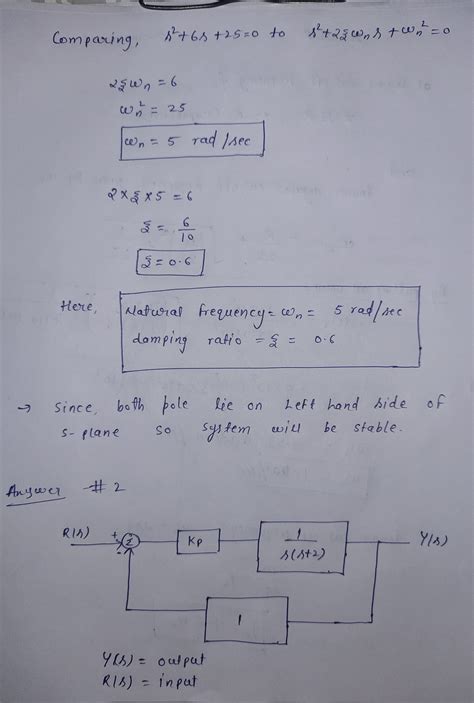 Comparing, s²+6s+25=0 to s²+2ξωₙs+ωₙ²=0
2ξωₙ = 6
ωₙ² = 25
ωₙ = 5 rad/sec
2×ξ×5 = 6
ξ = 6/10
ξ = 0.6
Here, Natural frequency = ωₙ = 5 rad/sec
damping ratio = ξ = 0.6
→ Since, both pole lie on Left hand side of
s-plane so system will be stable.
Answer #2
R(s) + Σ - Kp 1/s(s+2) Y(s)
1
Y(s) = output
R(s) = input